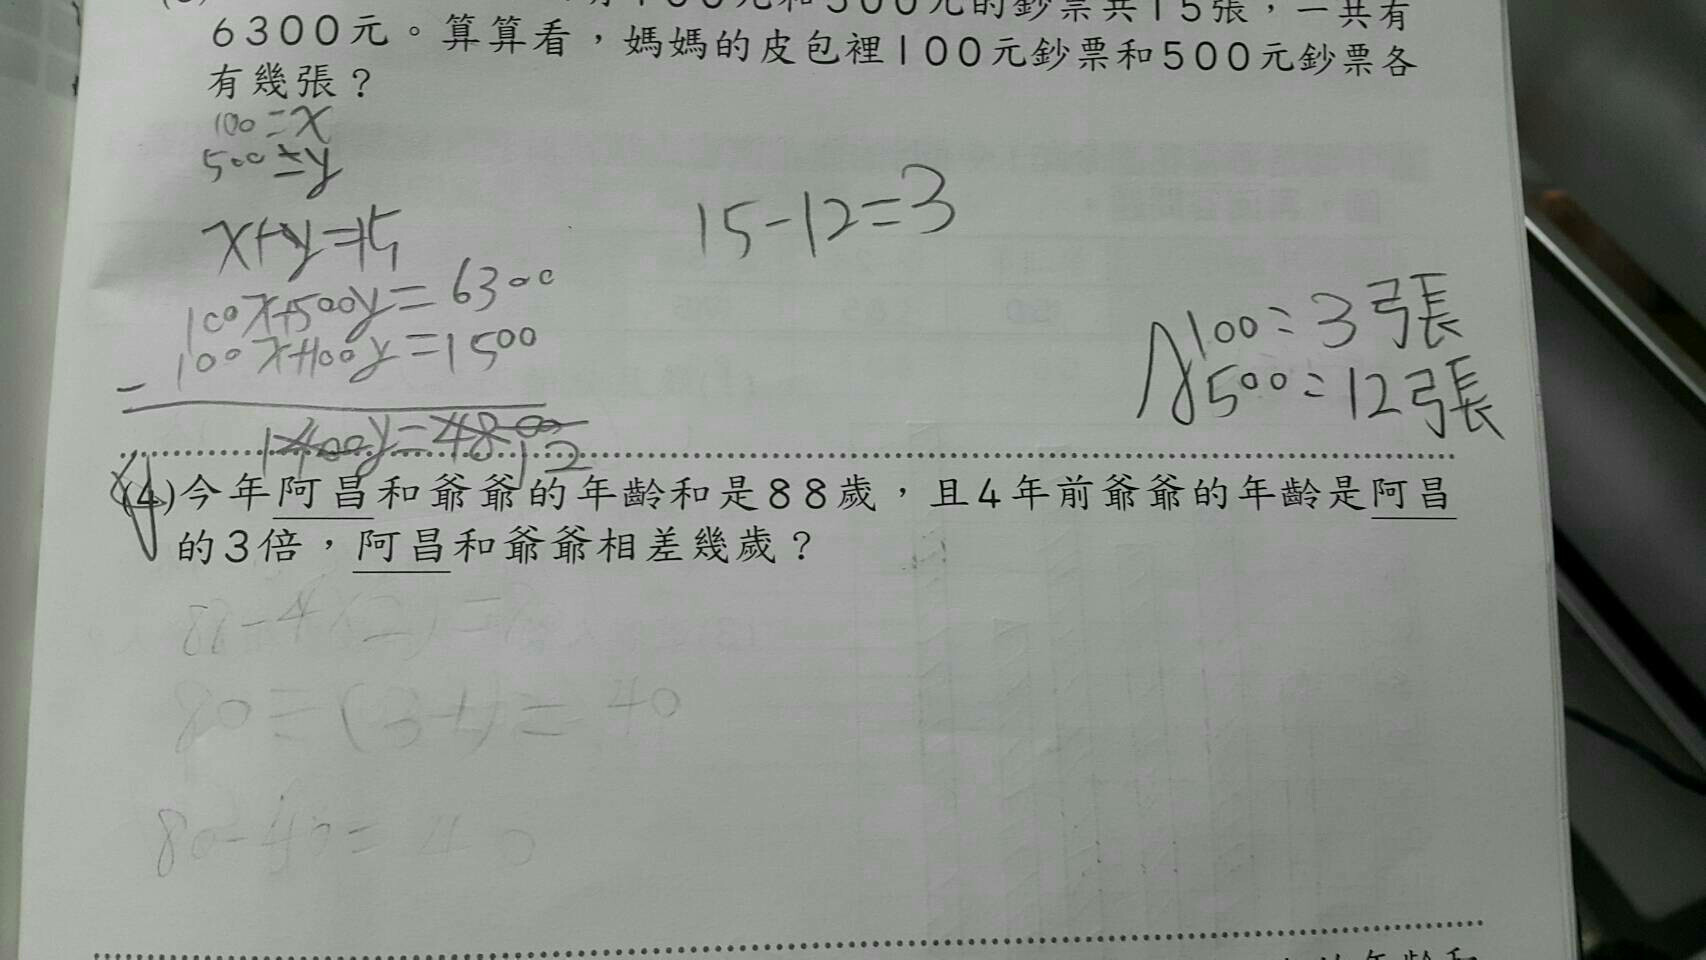 100元和500元的鈔票共15張，一共有
6300元。算算看，媽媽的皮包裡100元鈔票和500元鈔票各
有幾張？
100=x
500=y
x+y=15
100x+500y=6300
100x+100y=1500
15-12=3
100=3張
500=12張
-
1 400y=4800 12
(4)今年阿昌和爺爺的年齡和是88歲，且4年前爺爺的年齡是阿昌
的3倍，阿昌和爺爺相差幾歲？
80÷(3-1)=40
80-40=40
的年齡和